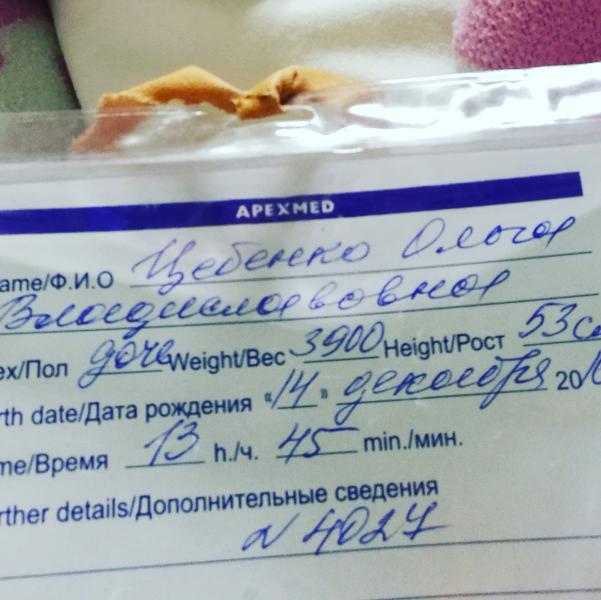 APEXMED
ame/Ф.И.О Цебенко Ольга
Владиславовна
ex/Пол дочь Weight/Вес 3900 Height/Рост 53 с
rth date/Дата рождения «14» декабря 20
me/Время 13 h./ч. 45 min./мин.
rther details/Дополнительные сведения
N 4027